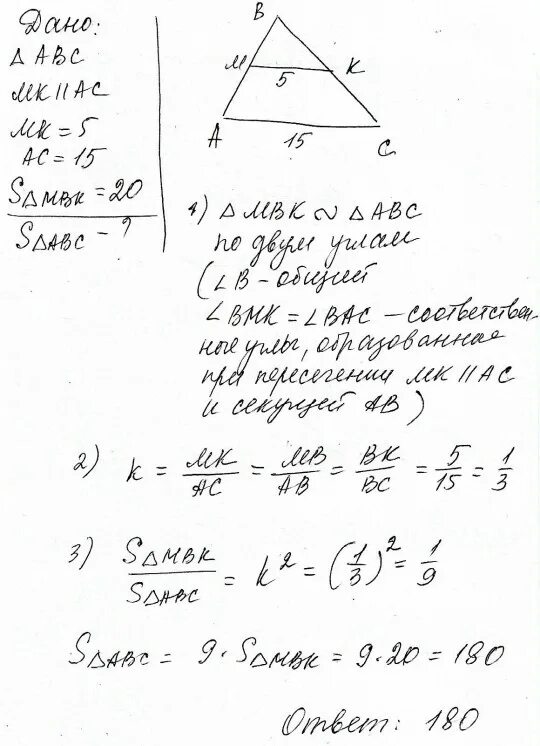 Дано:
△ABC
MK || AC
MK = 5
AC = 15
S△MBK = 20
S△ABC - ?
B
M
K
5
A
15
C
1) △MBK ∾ △ABC
по двум углам
(∠B - общий
∠BMK = ∠BAC – соответствен-
ные углы, образованные
при пересечении MK || AC
и секущей AB)
2) k = MK/AC = MB/AB = BK/BC = 5/15 = 1/3
3) S△MBK/S△ABC = k² = (1/3)² = 1/9
S△ABC = 9 · S△MBK = 9·20 = 180
Ответ: 180